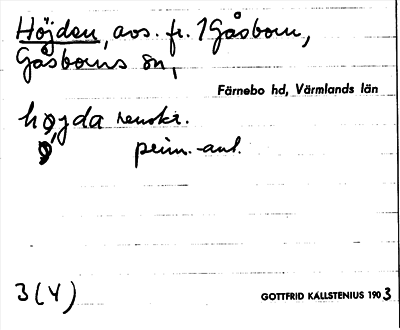 Höjden, avs. fr. 1 Gåsborn,
Gåsborns sn,
Färnebo hd, Värmlands län
hǫjda renskr.
ǫ prim.-ant.
3 (4)
GOTTFRID KALLSTENIUS 1903